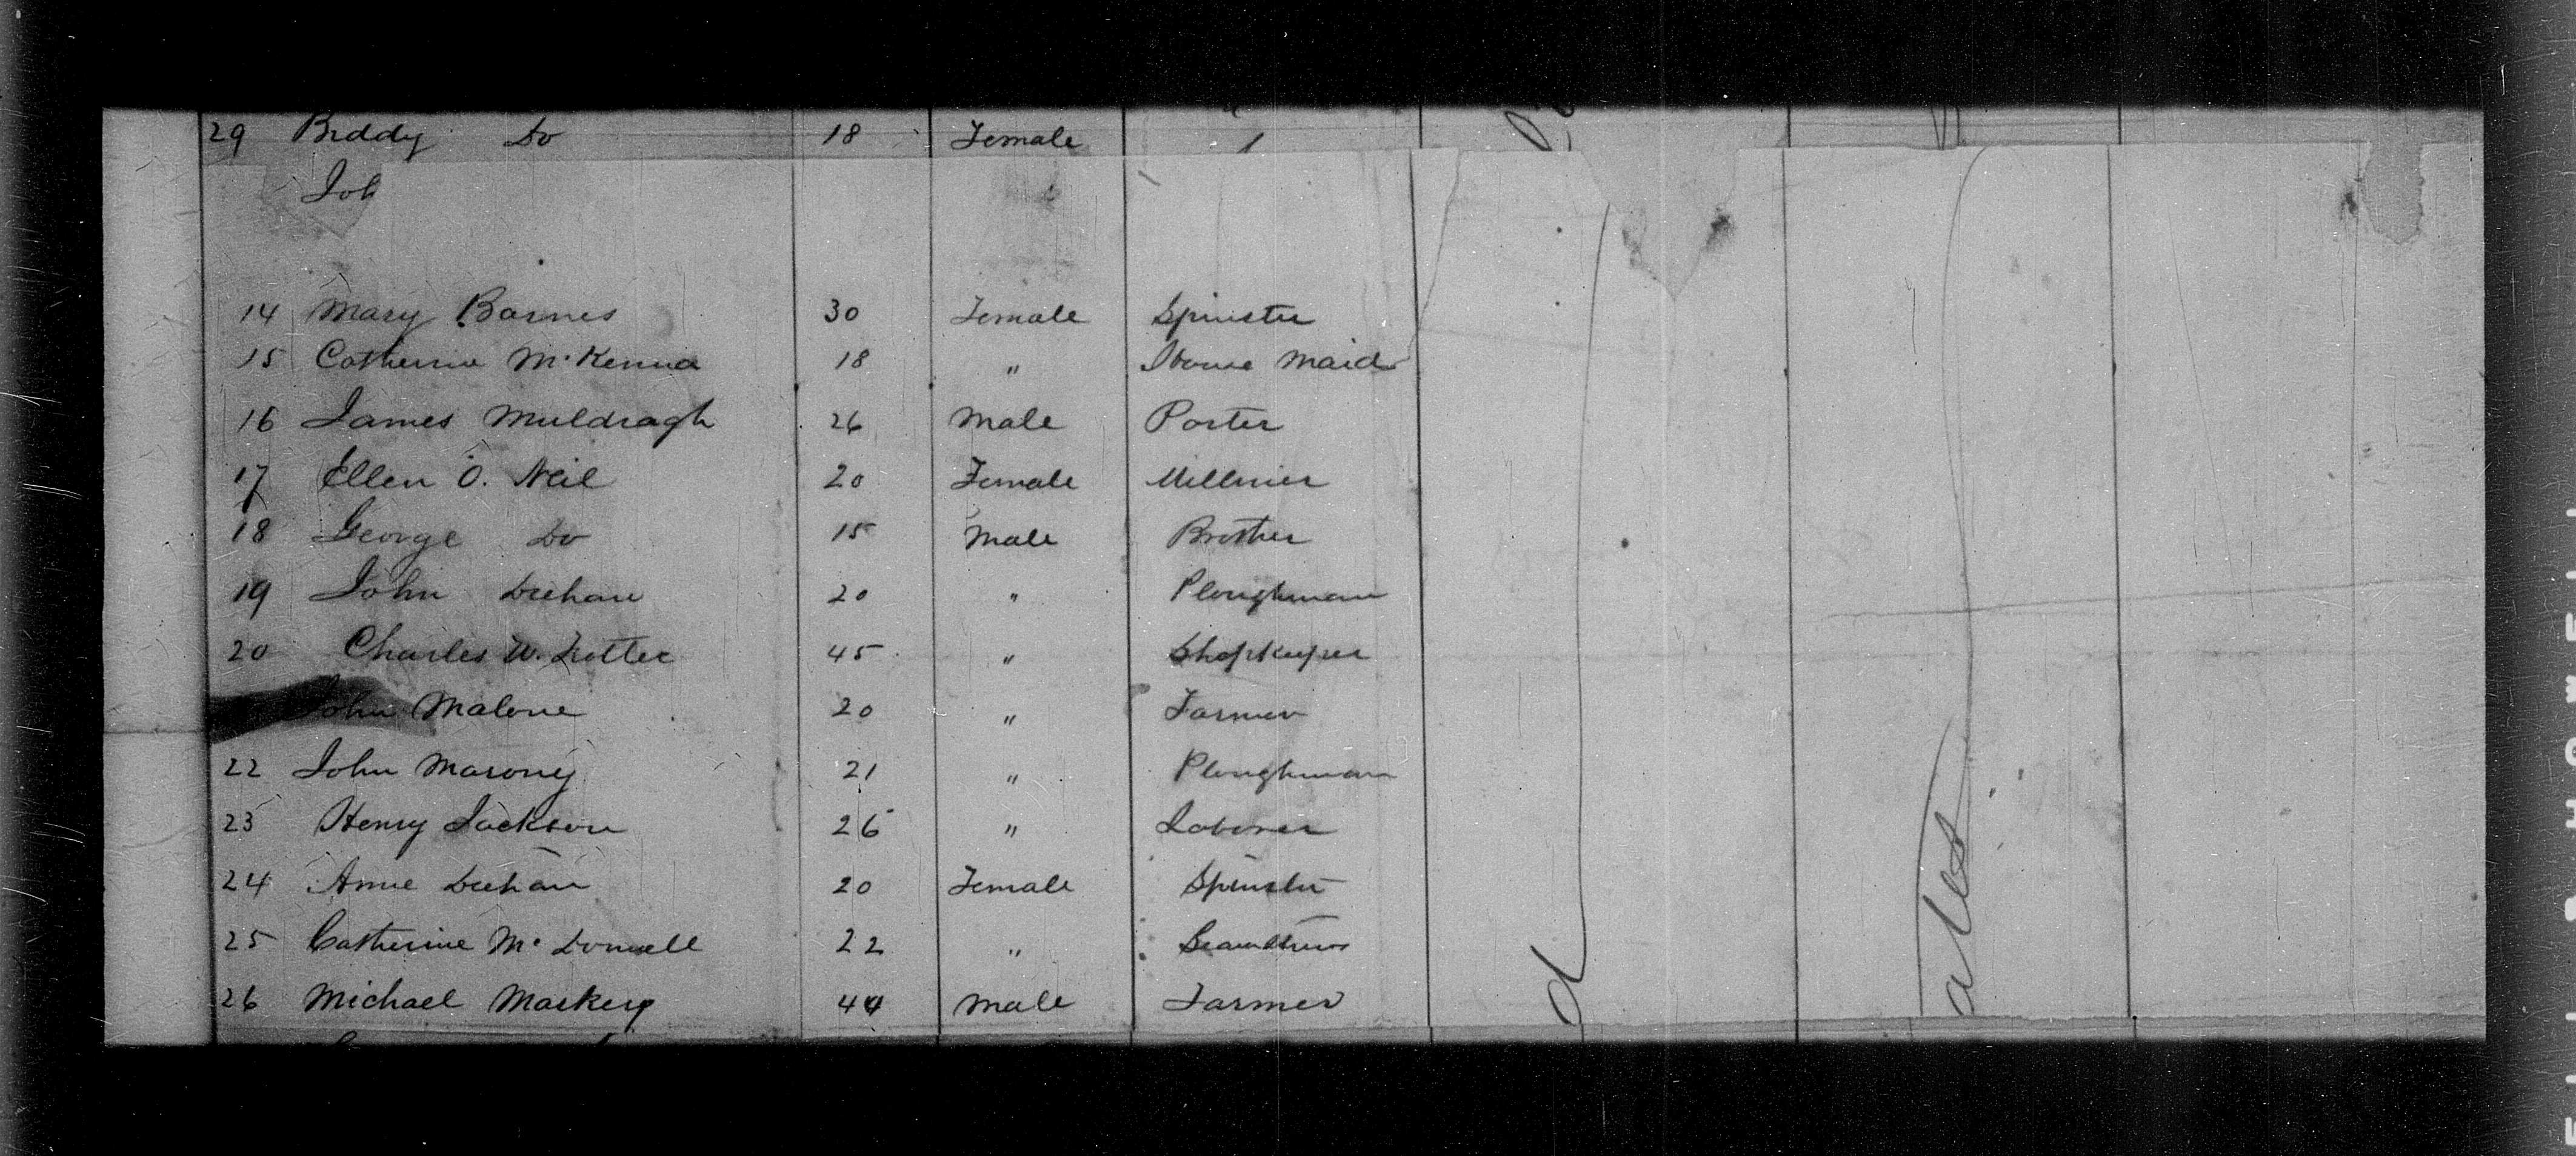 29 Biddy Do 18 Female
Joh
14 Mary Barnes 30 Female Spinster
15 Catherine McKenna 18 " House Maid
16 James Muldragh 26 Male Porter
17 Ellen O. Neil 20 Female Milliner
18 George Do 15 Male Brother
19 John Deehan 20 " Ploughman
20 Charles W. Trotter 45 " Shopkeeper
John Malone 20 " Farmer
22 John Marony 21 " Ploughman
23 Henry Jackson 26 " Laborer
24 Anne Deehan 20 Female Spinster
25 Catherine Mc Donnell 22 " Seamstress
26 Michael Markey 44 Male Farmer